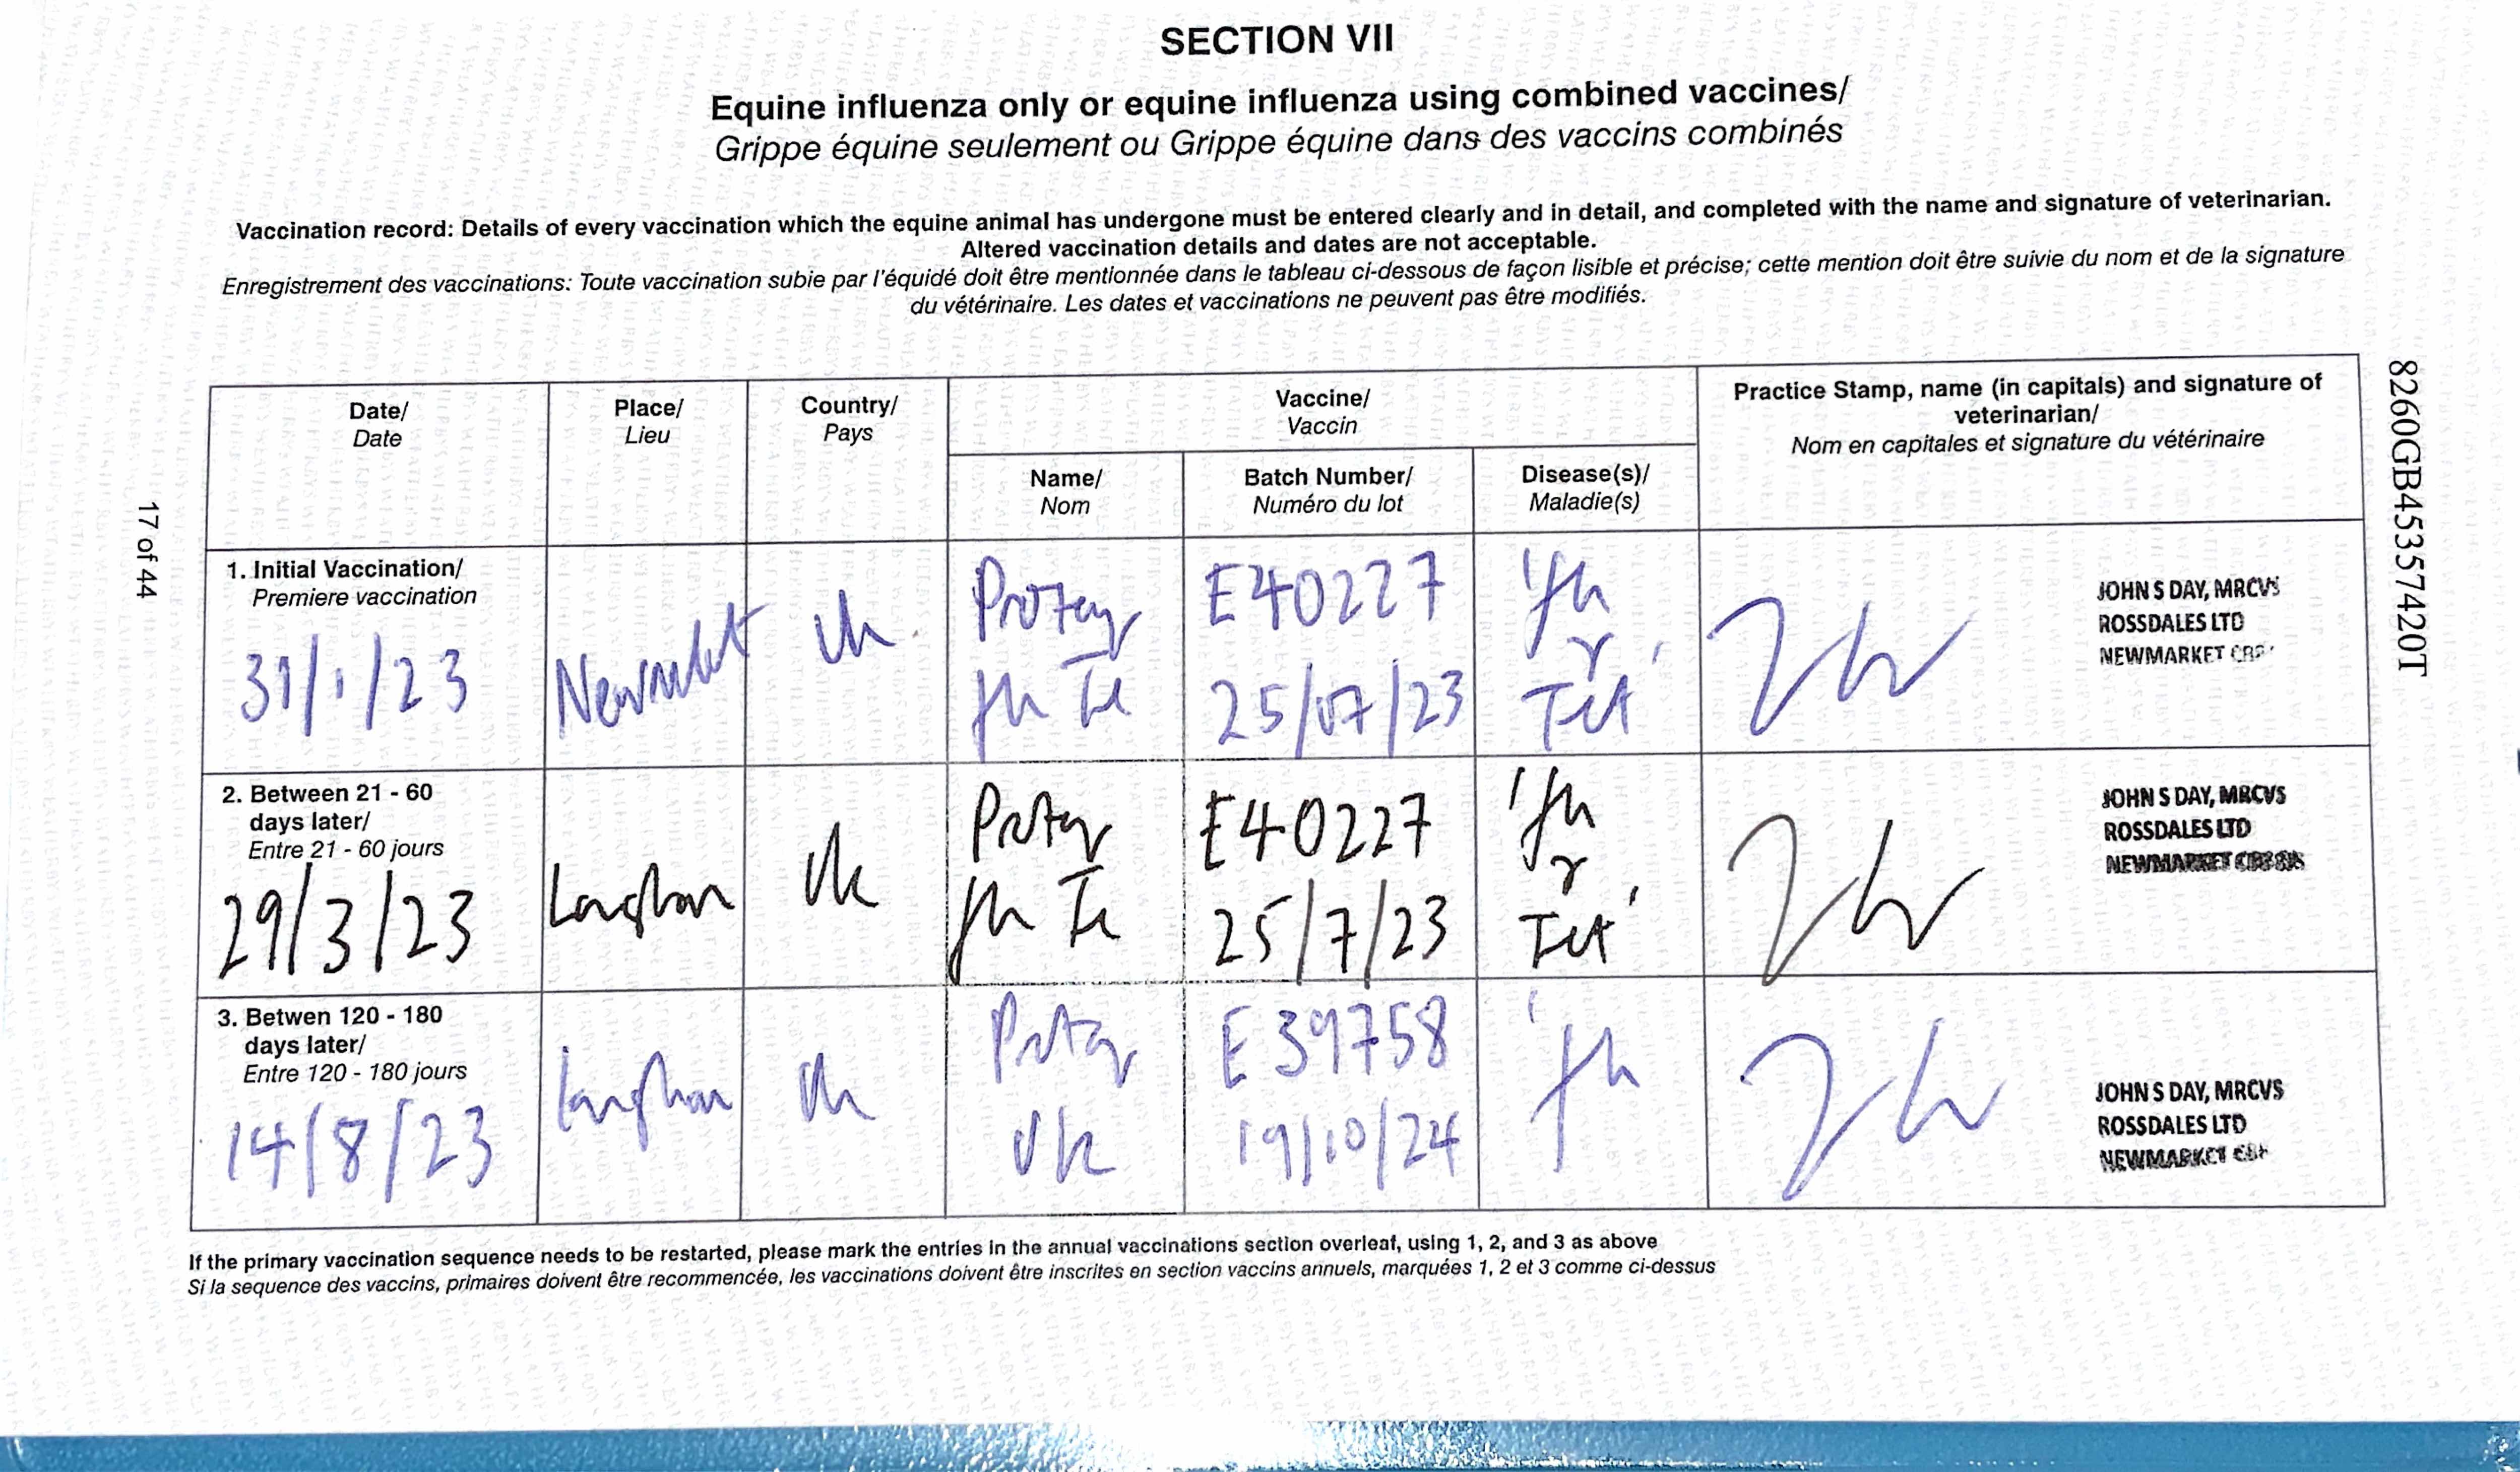 SECTION VII
Equine influenza only or equine influenza using combined vaccines/
Grippe équine seulement ou Grippe équine dans des vaccins combinés
Vaccination record: Details of every vaccination which the equine animal has undergone must be entered clearly and in detail, and completed with the name and signature of veterinarian.
Altered vaccination details and dates are not acceptable.
Enregistrement des vaccinations: Toute vaccination subie par l'équidé doit être mentionnée dans le tableau ci-dessous de façon lisible et précise; cette mention doit être suivie du nom et de la signature
du vétérinaire. Les dates et vaccinations ne peuvent pas être modifiés.
Date/
Date
Place/
Lieu
Country/
Pays
Vaccine/
Vaccin
Name/
Nom
Batch Number/
Numéro du lot
Disease(s)/
Maladie(s)
Practice Stamp, name (in capitals) and signature of
veterinarian/
Nom en capitales et signature du vétérinaire
1. Initial Vaccination/
Premiere vaccination
31/1/23
Newmarket
Uk
Te
E40227
25/07/23
Tet
JOHN S DAY, MRCVS
ROSSDALES LTD
NEWMARKET
2. Between 21 - 60
days later/
Entre 21 - 60 jours
29/3/23
Uk
Te
E40227
25/7/23
Tet
JOHN S DAY, MRCVS
ROSSDALES LTD
NEWMARKET
3. Betwen 120 - 180
days later/
Entre 120 - 180 jours
14/8/23
Uk
E39758
19/10/24
JOHN S DAY, MRCVS
ROSSDALES LTD
NEWMARKET
If the primary vaccination sequence needs to be restarted, please mark the entries in the annual vaccinations section overleaf, using 1, 2, and 3 as above
Si la sequence des vaccins, primaires doivent être recommencée, les vaccinations doivent être inscrites en section vaccins annuels, marquées 1, 2 et 3 comme ci-dessus
17 of 44
8260GB45357420T